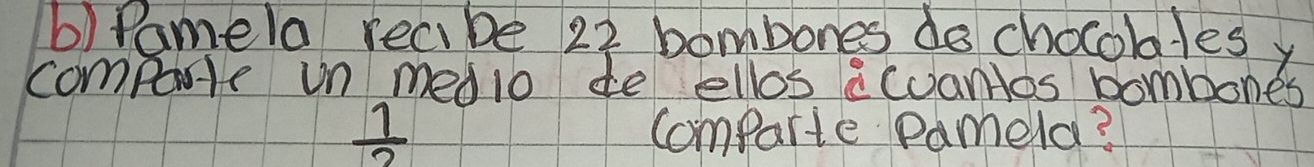 b) Pamela recibe 22 bombones de chocolates y
comparte un medio de ellos ¿cuantos bombones
1/2 comparte Pamela?